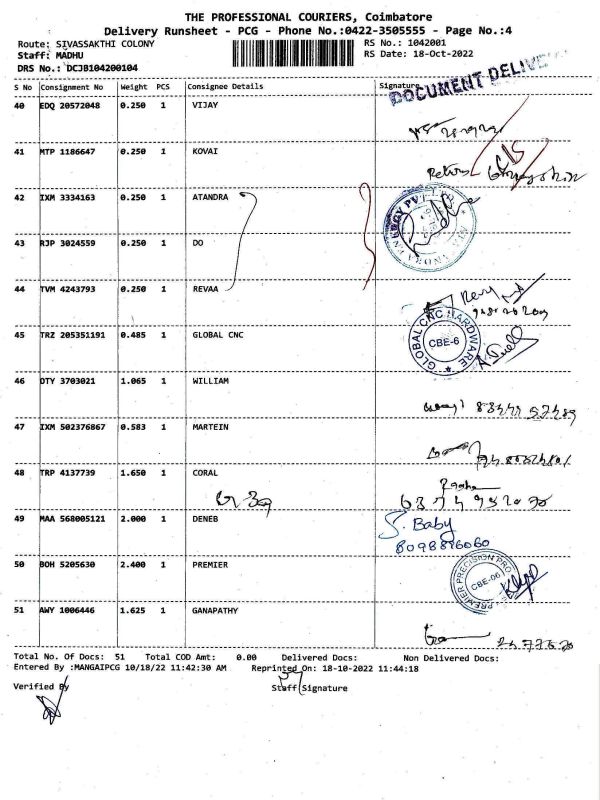 THE PROFESSIONAL COURIERS, Coimbatore
Delivery Runsheet - PCG - Phone No.:0422-3505555 - Page No.:4
Route: SIVASSAKTHI COLONY RS No.: 1042001
Staff: MADHU RS Date: 18-Oct-2022
DRS No.: DCJB104200104
S No Consignment No Weight PCS Consignee Details Signature
DOCUMENT DELIVE
40 EDQ 20572048 0.250 1 VIJAY
41 MTP 1186647 0.250 1 KOVAI
Return
42 IXM 3334163 0.250 1 ATANDRA
ENERGY PVT LTD
43 RJP 3024559 0.250 1 DO
44 TVM 4243793 0.250 1 REVAA
45 TRZ 205351191 0.485 1 GLOBAL CNC
GLOBAL CNC HARDWARE
CBE-6
46 DTY 3703021 1.065 1 WILLIAM
47 IXM 502376867 0.583 1 MARTEIN
48 TRP 4137739 1.650 1 CORAL
49 MAA 568005121 2.000 1 DENEB
S. Baby
8098896060
50 BOH 5205630 2.400 1 PREMIER
PREMIER PRECISION PRO
CBE-06
51 AWY 1006446 1.625 1 GANAPATHY
Total No. Of Docs: 51 Total COD Amt: 0.00 Delivered Docs: Non Delivered Docs:
Entered By :MANGAIPCG 10/18/22 11:42:30 AM Reprinted On: 18-10-2022 11:44:18
Verified By Staff Signature